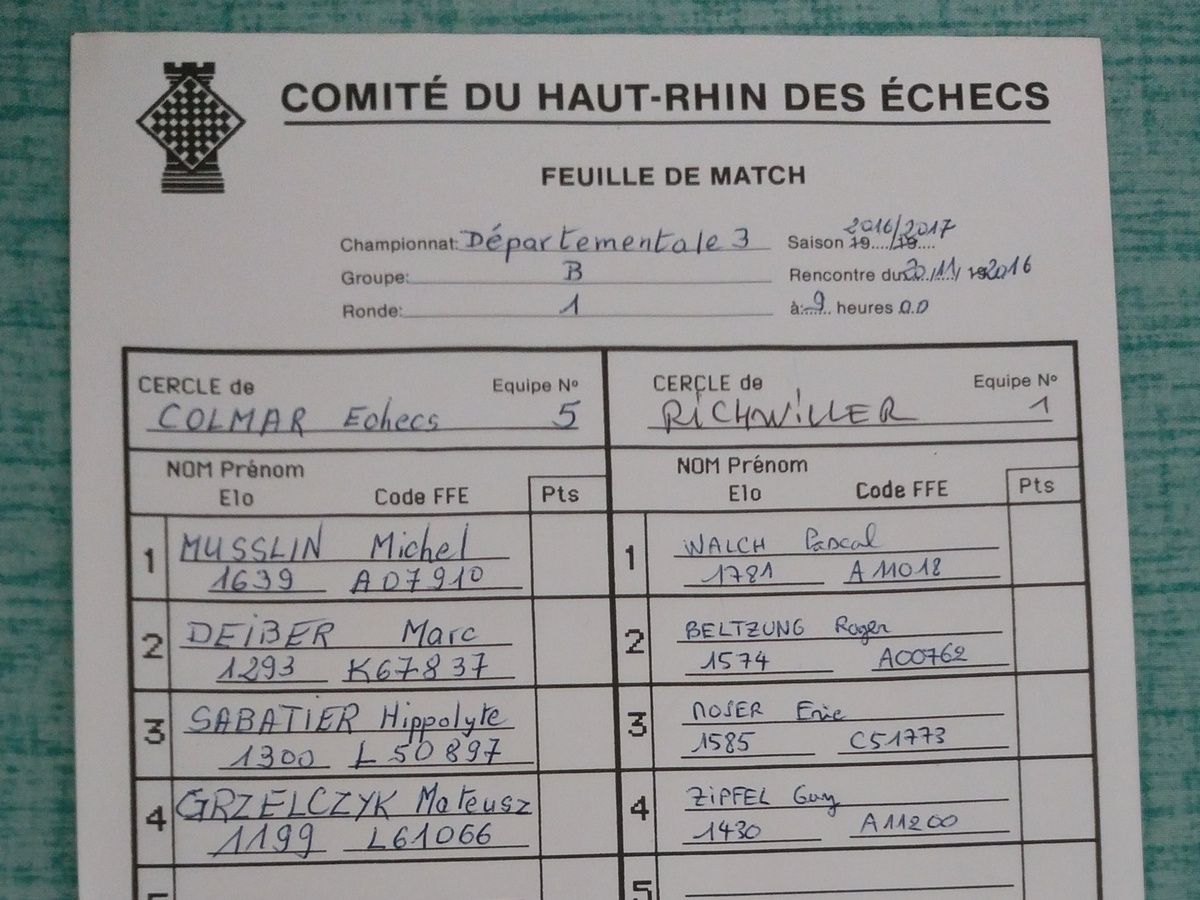 COMITÉ DU HAUT-RHIN DES ÉCHECS
FEUILLE DE MATCH
Championnat: Départementale 3 Saison 19..../19.... 2016/2017
Groupe: B Rencontre du 20/11/ 19 2016
Ronde: 1 à: 9 heures 00
CERCLE de Equipe Nº CERCLE de Equipe Nº
COLMAR Echecs 5 RICHWILLER 1
NOM Prénom NOM Prénom
Elo Code FFE Pts Elo Code FFE Pts
1 MUSSLIN Michel 1 WALCH Pascal
1639 A07910 1781 A11018
2 DEIBER Marc 2 BELTZUNG Roger
1293 K67837 1574 A00762
3 SABATIER Hippolyte 3 MOSER Eric
1300 L50897 1585 C51773
4 GRZELCZYK Mateusz 4 ZIPFEL Guy
1199 L61066 1430 A11200
5 5